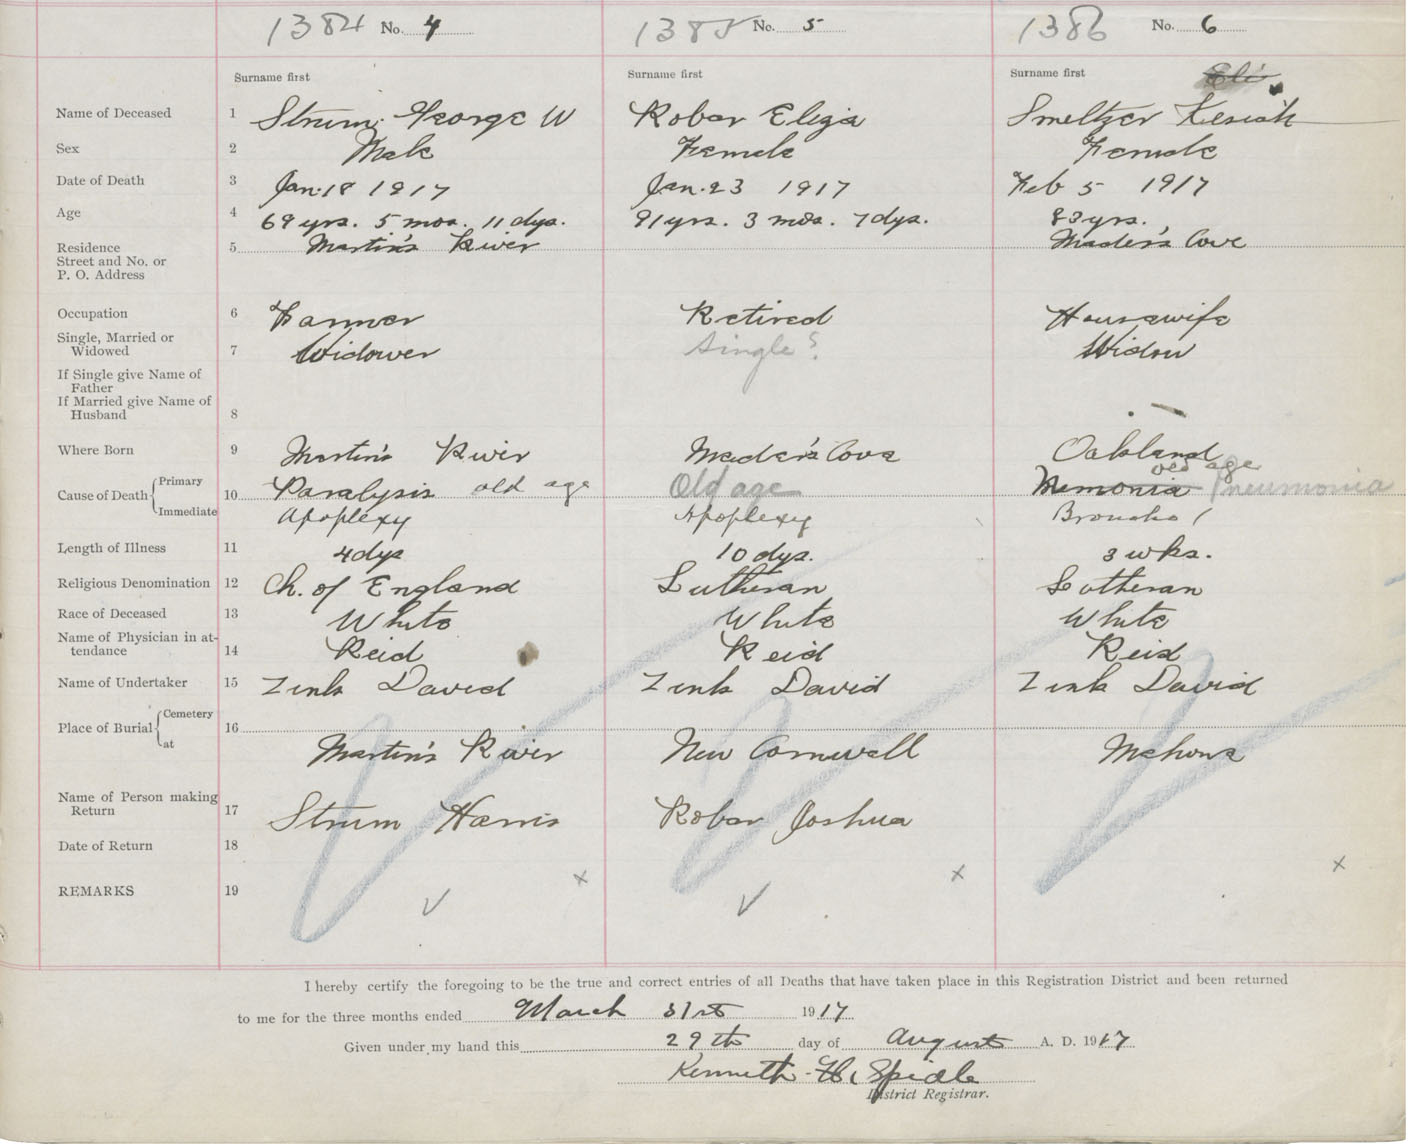 1384 No. 4 1385 No. 5 1386 No. 6
Surname first Surname first Surname first
Name of Deceased 1 Strum George W Robar Eliza Smeltzer Kesiah
Sex 2 Male Female Female
Date of Death 3 Jan. 18 1917 Jan. 23 1917 Feb 5 1917
Age 4 69 yrs. 5 mos. 11 dys. 91 yrs. 3 mos. 7 dys. 83 yrs.
Residence 5 Martin's River Mader's Cove
Street and No. or
P. O. Address
Occupation 6 Farmer Retired Housewife
Single, Married or
Widowed 7 Widower Single? Widow
If Single give Name of
Father
If Married give Name of
Husband 8
Where Born 9 Martin's River Mader's Cove Oakland
old age
Cause of Death Primary 10 Paralysis old age Old age Nemonia Pneumonia
Immediate Apoplexy Apoplexy Broncho
Length of Illness 11 4 dys 10 dys. 3 wks.
Religious Denomination 12 Ch. of England Lutheran Lutheran
Race of Deceased 13 White White White
Name of Physician in at-
tendance 14 Reid Reid Reid
Name of Undertaker 15 Zink David Zink David Zink David
Place of Burial Cemetery 16
at Martin's River New Cornwall Mahone
Name of Person making
Return 17 Strum Harris Robar Joshua
Date of Return 18
REMARKS 19
I hereby certify the foregoing to be the true and correct entries of all Deaths that have taken place in this Registration District and been returned
to me for the three months ended March 31st 1917
Given under my hand this 29th day of August A. D. 1917
Kenneth H. Spidle
District Registrar.